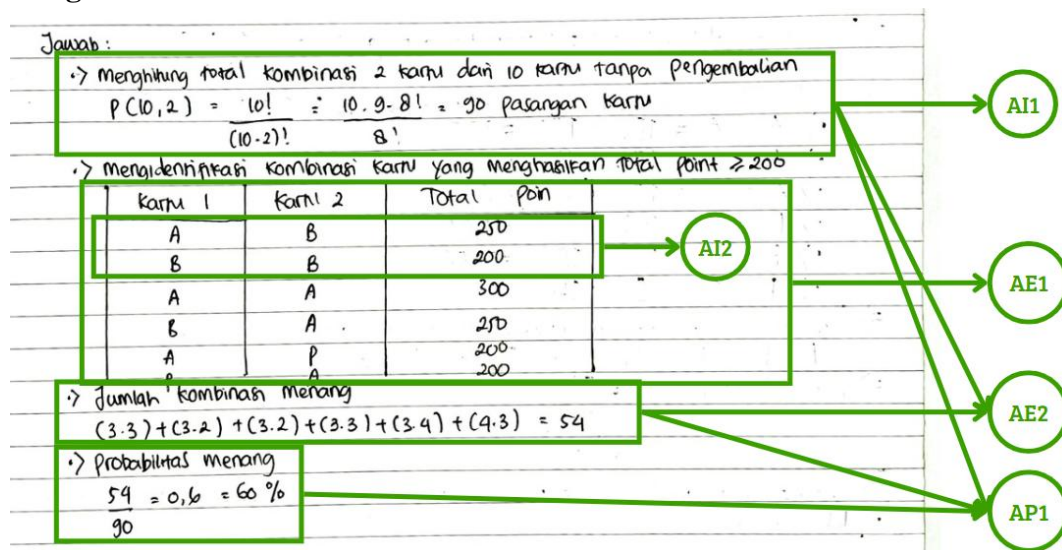 Jawab :
•> Menghitung total kombinasi 2 kartu dari 10 kartu tanpa pengembalian
P(10,2) = 10! = 10.9.8! = 90 pasangan kartu
(10-2)! 8!
AI1
•> mengidentifikasi kombinasi kartu yang menghasilkan total point ≥ 200
Kartu 1 Kartu 2 Total Poin
A B 250
B B 200
AI2
A A 300
AE1
B A 250
A P 200
P A 200
•> Jumlah kombinasi menang
(3.3)+(3.2)+(3.2)+(3.3)+(3.4)+(4.3) = 54
AE2
•> Probabilitas menang
54 = 0,6 = 60 %
90
AP1